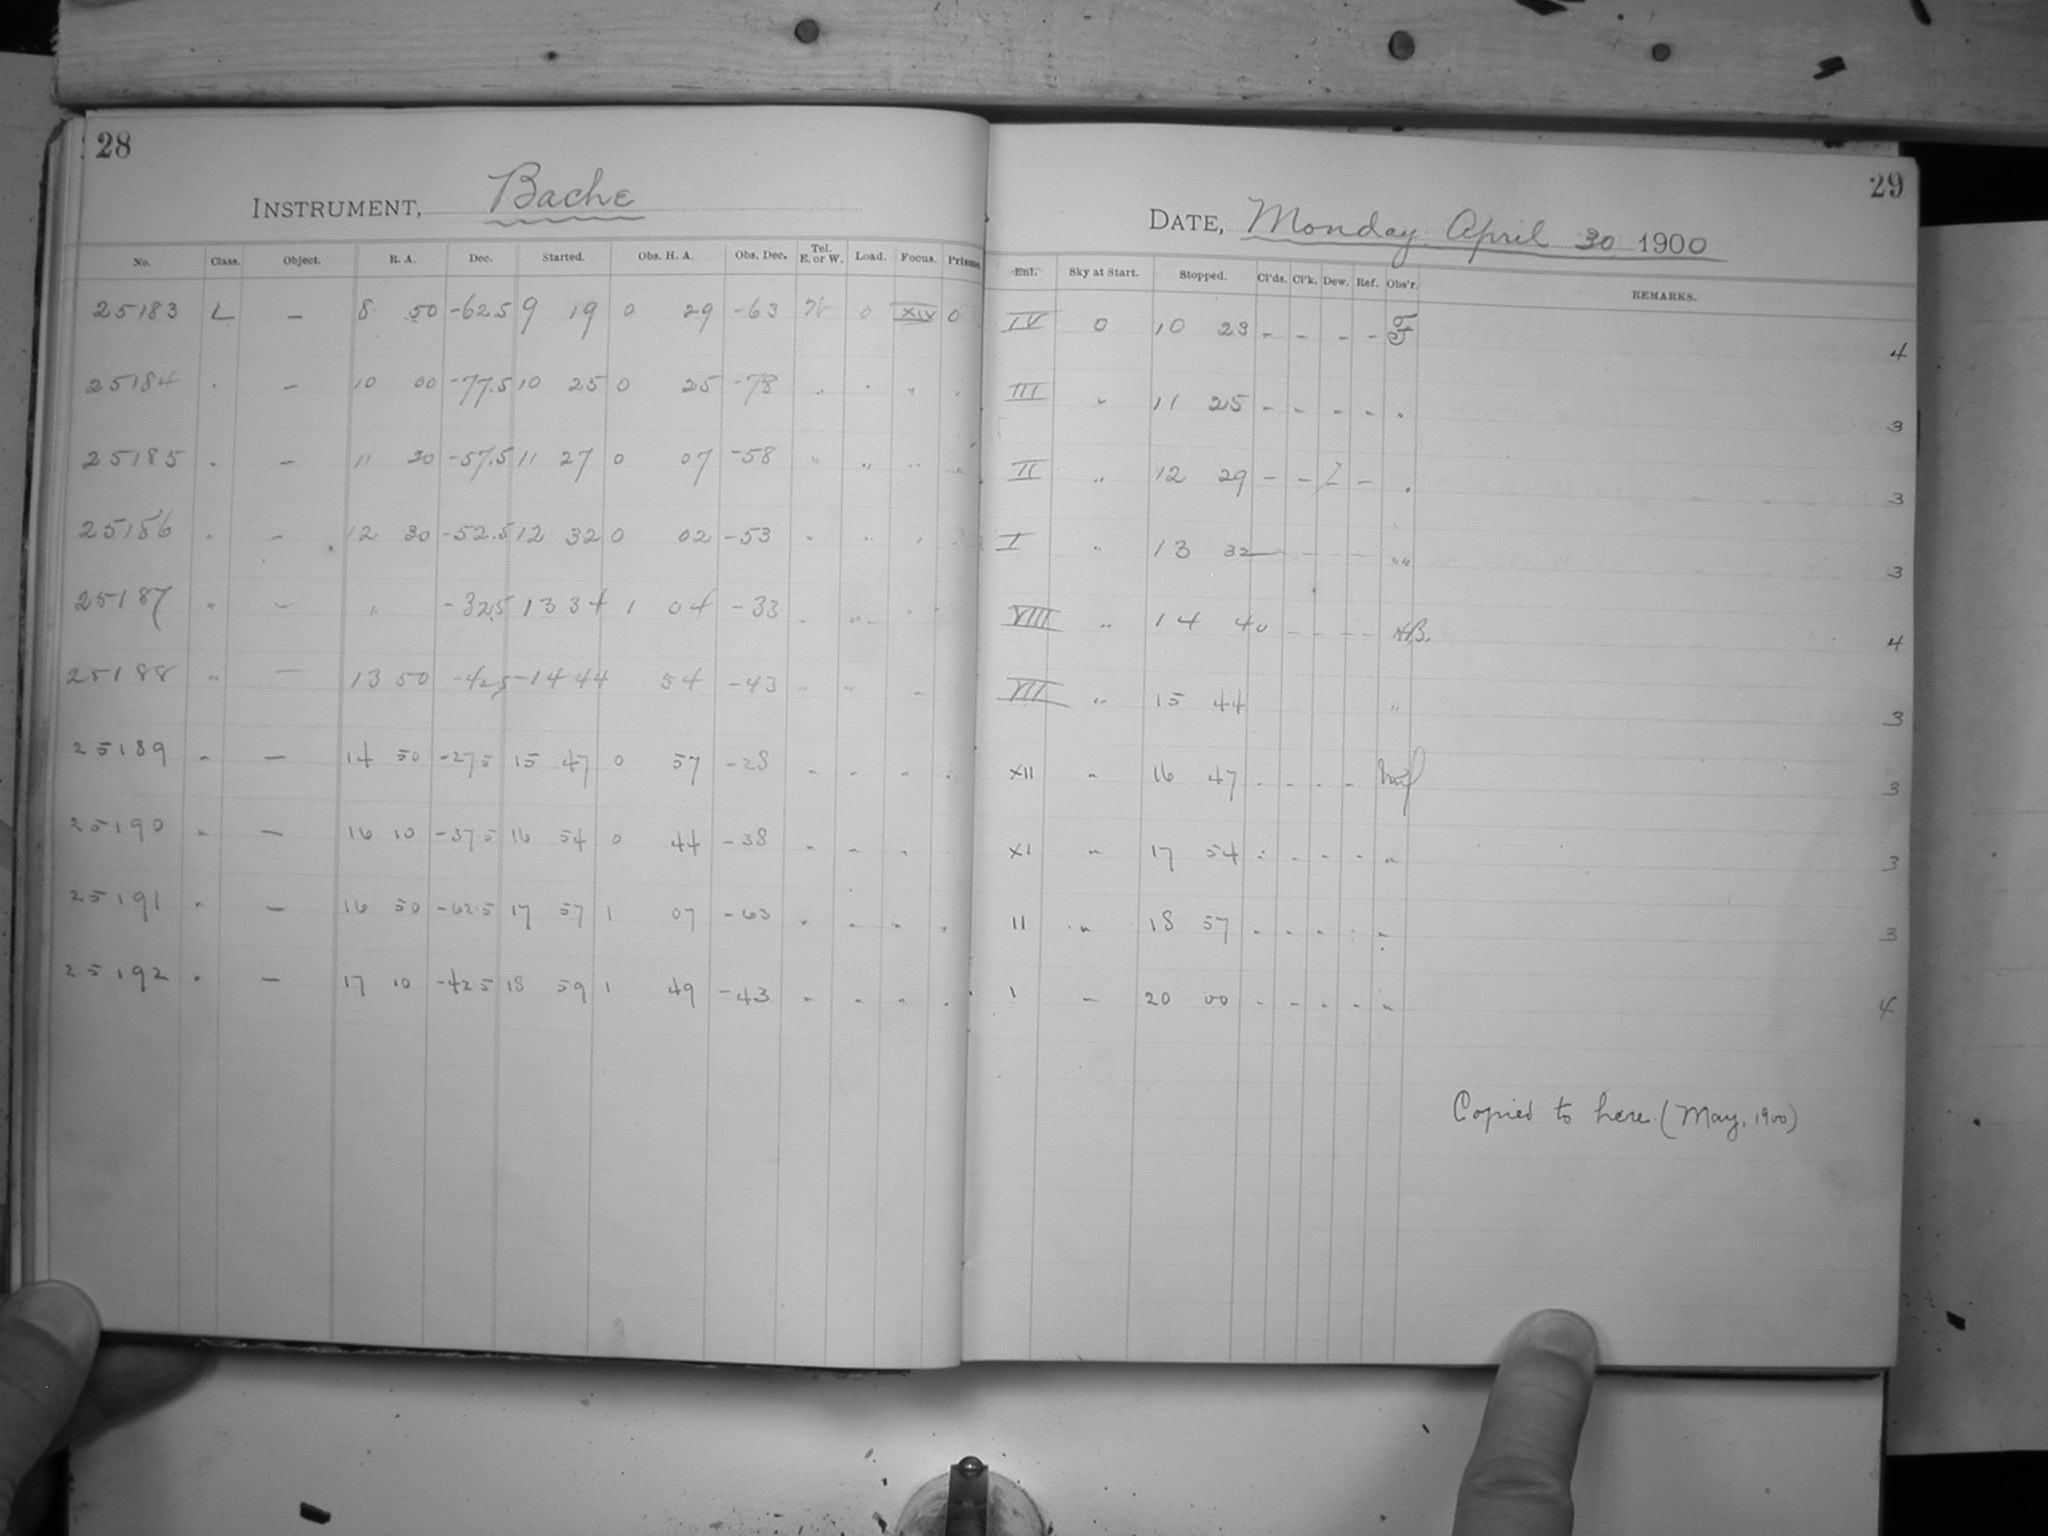 28
INSTRUMENT, Bache
No. Class. Object. R. A. Dec. Started. Obs. H. A. Obs. Dec. Tel. E. or W. Load. Focus. Prisms.
25183 L — 8 50 -62.5 9 19 0 29 -63 W 0 XIV 0
25184 " — 10 00 -77.5 10 25 0 25 -78 " " " "
25185 " — 11 20 -57.5 11 27 0 07 -58 " " " "
25186 " — 12 30 -52.5 12 32 0 02 -53 " " " "
25187 " — " -32.5 13 34 1 04 -33 " " " "
25188 " — 13 50 -42.5 -14 44 54 -43 " " "
25189 " — 14 50 -27.5 15 47 0 57 -28 " " " "
25190 " — 16 10 -37.5 16 54 0 44 -38 " " "
25191 " — 16 50 -62.5 17 57 1 07 -63 " " " "
25192 " — 17 10 -42.5 18 59 1 49 -43 " " " "
29
DATE, Monday April 30 1900
Enl. Sky at Start. Stopped. Cl'ds. Cl'k. Dew. Ref. Obs'r. REMARKS.
IV 0 10 23 - - - - 4
III " 11 25 - - - - " 3
II " 12 29 - - - " 3
I " 13 32 - - - - " 3
VIII " 14 40 - - - - 4
VII " 15 44 " 3
XII " 16 47 - - - - 3
XI " 17 54 - - - - " 3
II " 18 57 - - - - " 3
I " 20 00 - - - - " 4
Copied to here (May, 1900)